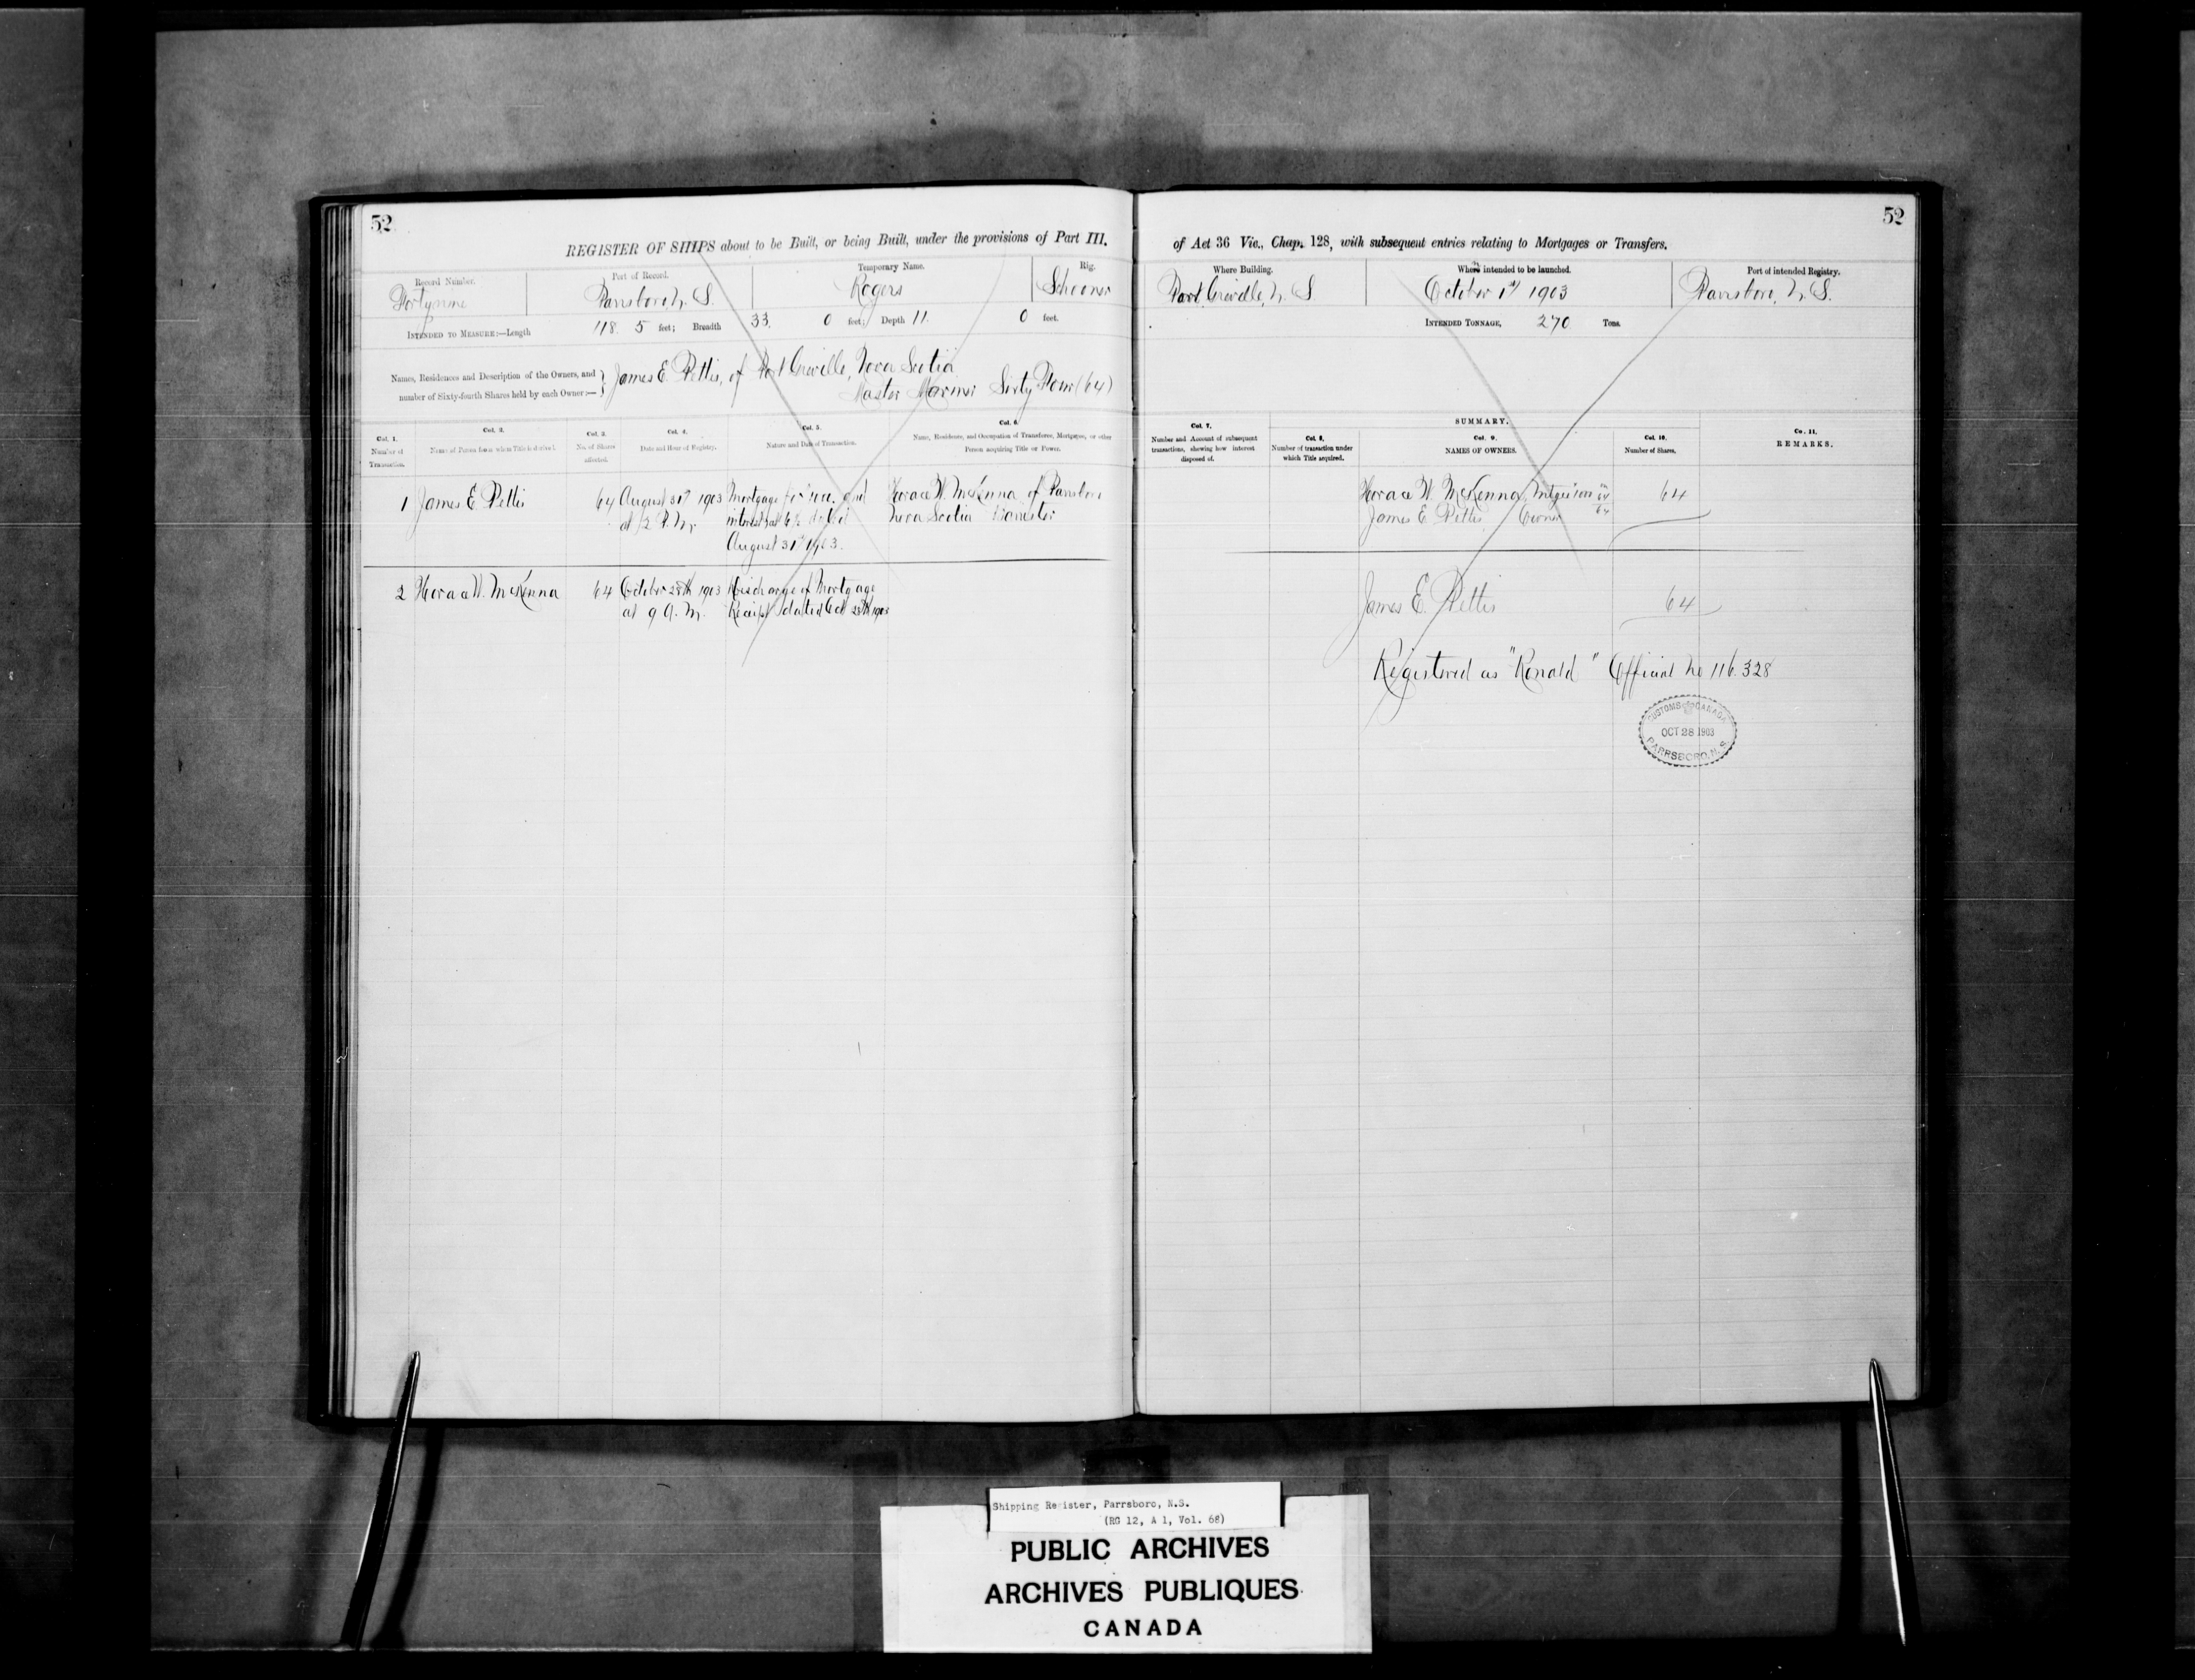 52
REGISTER OF SHIPS about to be Built, or being Built, under the provisions of Part III.
Record Number.
Port of Record.
Temporary Name.
Rig.
Forty nine
Parrsboro, N. S.
Rogers
Schooner
INTENDED TO MEASURE:—Length 118. 5 feet; Breadth 33. 0 feet; Depth 11. 0 feet.
Names, Residences and Description of the Owners, and
number of Sixty-fourth Shares held by each Owner:—
James E. Pettis, of Port Greville, Nova Scotia
Master Mariner Sixty Four (64)
Col. 1.
Number of
Transaction.
Col. 2.
Name of Person from whom Title is derived.
Col. 3.
No. of Shares
affected.
Col. 4.
Date and Hour of Registry.
Col. 5.
Nature and Date of Transaction.
Col. 6.
Name, Residence, and Occupation of Transferee, Mortgagee, or other
Person acquiring Title or Power.
1 James E Pettis 64 August 31st 1903 Mortgage and Horace W. McKenna of Parrsboro
at 2 P.M. interest at 6% dated Nova Scotia Barrister
August 31st 1903.
2 Horace W. McKenna 64 October 28th 1903 Discharge of Mortgage
at 9 A. M. Receipt dated Oct 28th 1903
52
of Act 36 Vic., Chap. 128, with subsequent entries relating to Mortgages or Transfers.
Where Building.
When intended to be launched.
Port of intended Registry.
Port Greville, N. S
October 1st 1903
Parrsboro, N. S.
INTENDED TONNAGE, 270 Tons.
SUMMARY.
Col. 7.
Number and Account of subsequent
transactions, shewing how interest
disposed of.
Col. 8.
Number of transaction under
which Title acquired.
Col. 9.
NAMES OF OWNERS.
Col. 10.
Number of Shares.
Col. 11.
REMARKS.
Horace W. McKenna, 64
James E. Pettis Owner
James E. Pettis 64
Registered as "Ronald" Official No 116.328
CUSTOMS CANADA
OCT 28 1903
PARRSBORO, N.S.
Shipping Register, Parrsboro, N.S.
(RG 12, A 1, Vol. 68)
PUBLIC ARCHIVES
ARCHIVES PUBLIQUES
CANADA